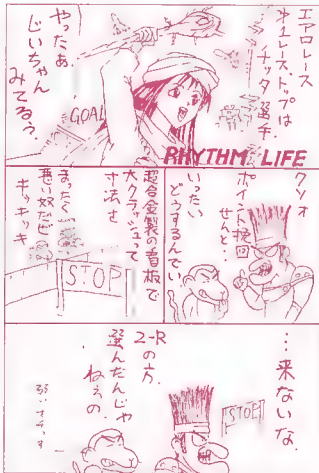 エアロレース
オ1レーストップは
ナッター選手.
やったぁ.
じいちゃん
みてるぅ?
GOAL
RHYTHM LIFE
クソォ
ポイント挽回
せんと…
いったい
どうするんでい.
超合金製の看板で
大クラッシュって
寸法さ
まったく
悪い奴だピ
キッキッキ
STOP
…来ないな.
STOP
Z-Rの方.
選んだんじゃ
ねぇの.